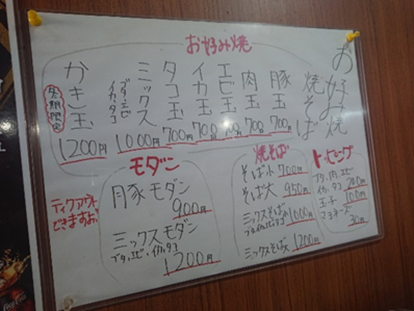 お好み焼
焼そば
お好み焼
豚玉 700円
肉玉 700円
エビ玉 700円
イカ玉 700円
タコ玉 700円
ミックス 1000円
ブタ、エビ
イカ、タコ
かき玉 1200円
冬期限定
モダン
豚モダン
900円
ミックスモダン
ブタ、エビ、イカ、タコ
1200円
テイクアウト
できますよ
焼そば
そば小 700円
そば大 950円
ミックスそば小 1000円
ミックスそば大 1200円
トッピング
ブタ、肉、エビ
イカ、タコ 200円
玉子 100円
マヨネーズ
30円